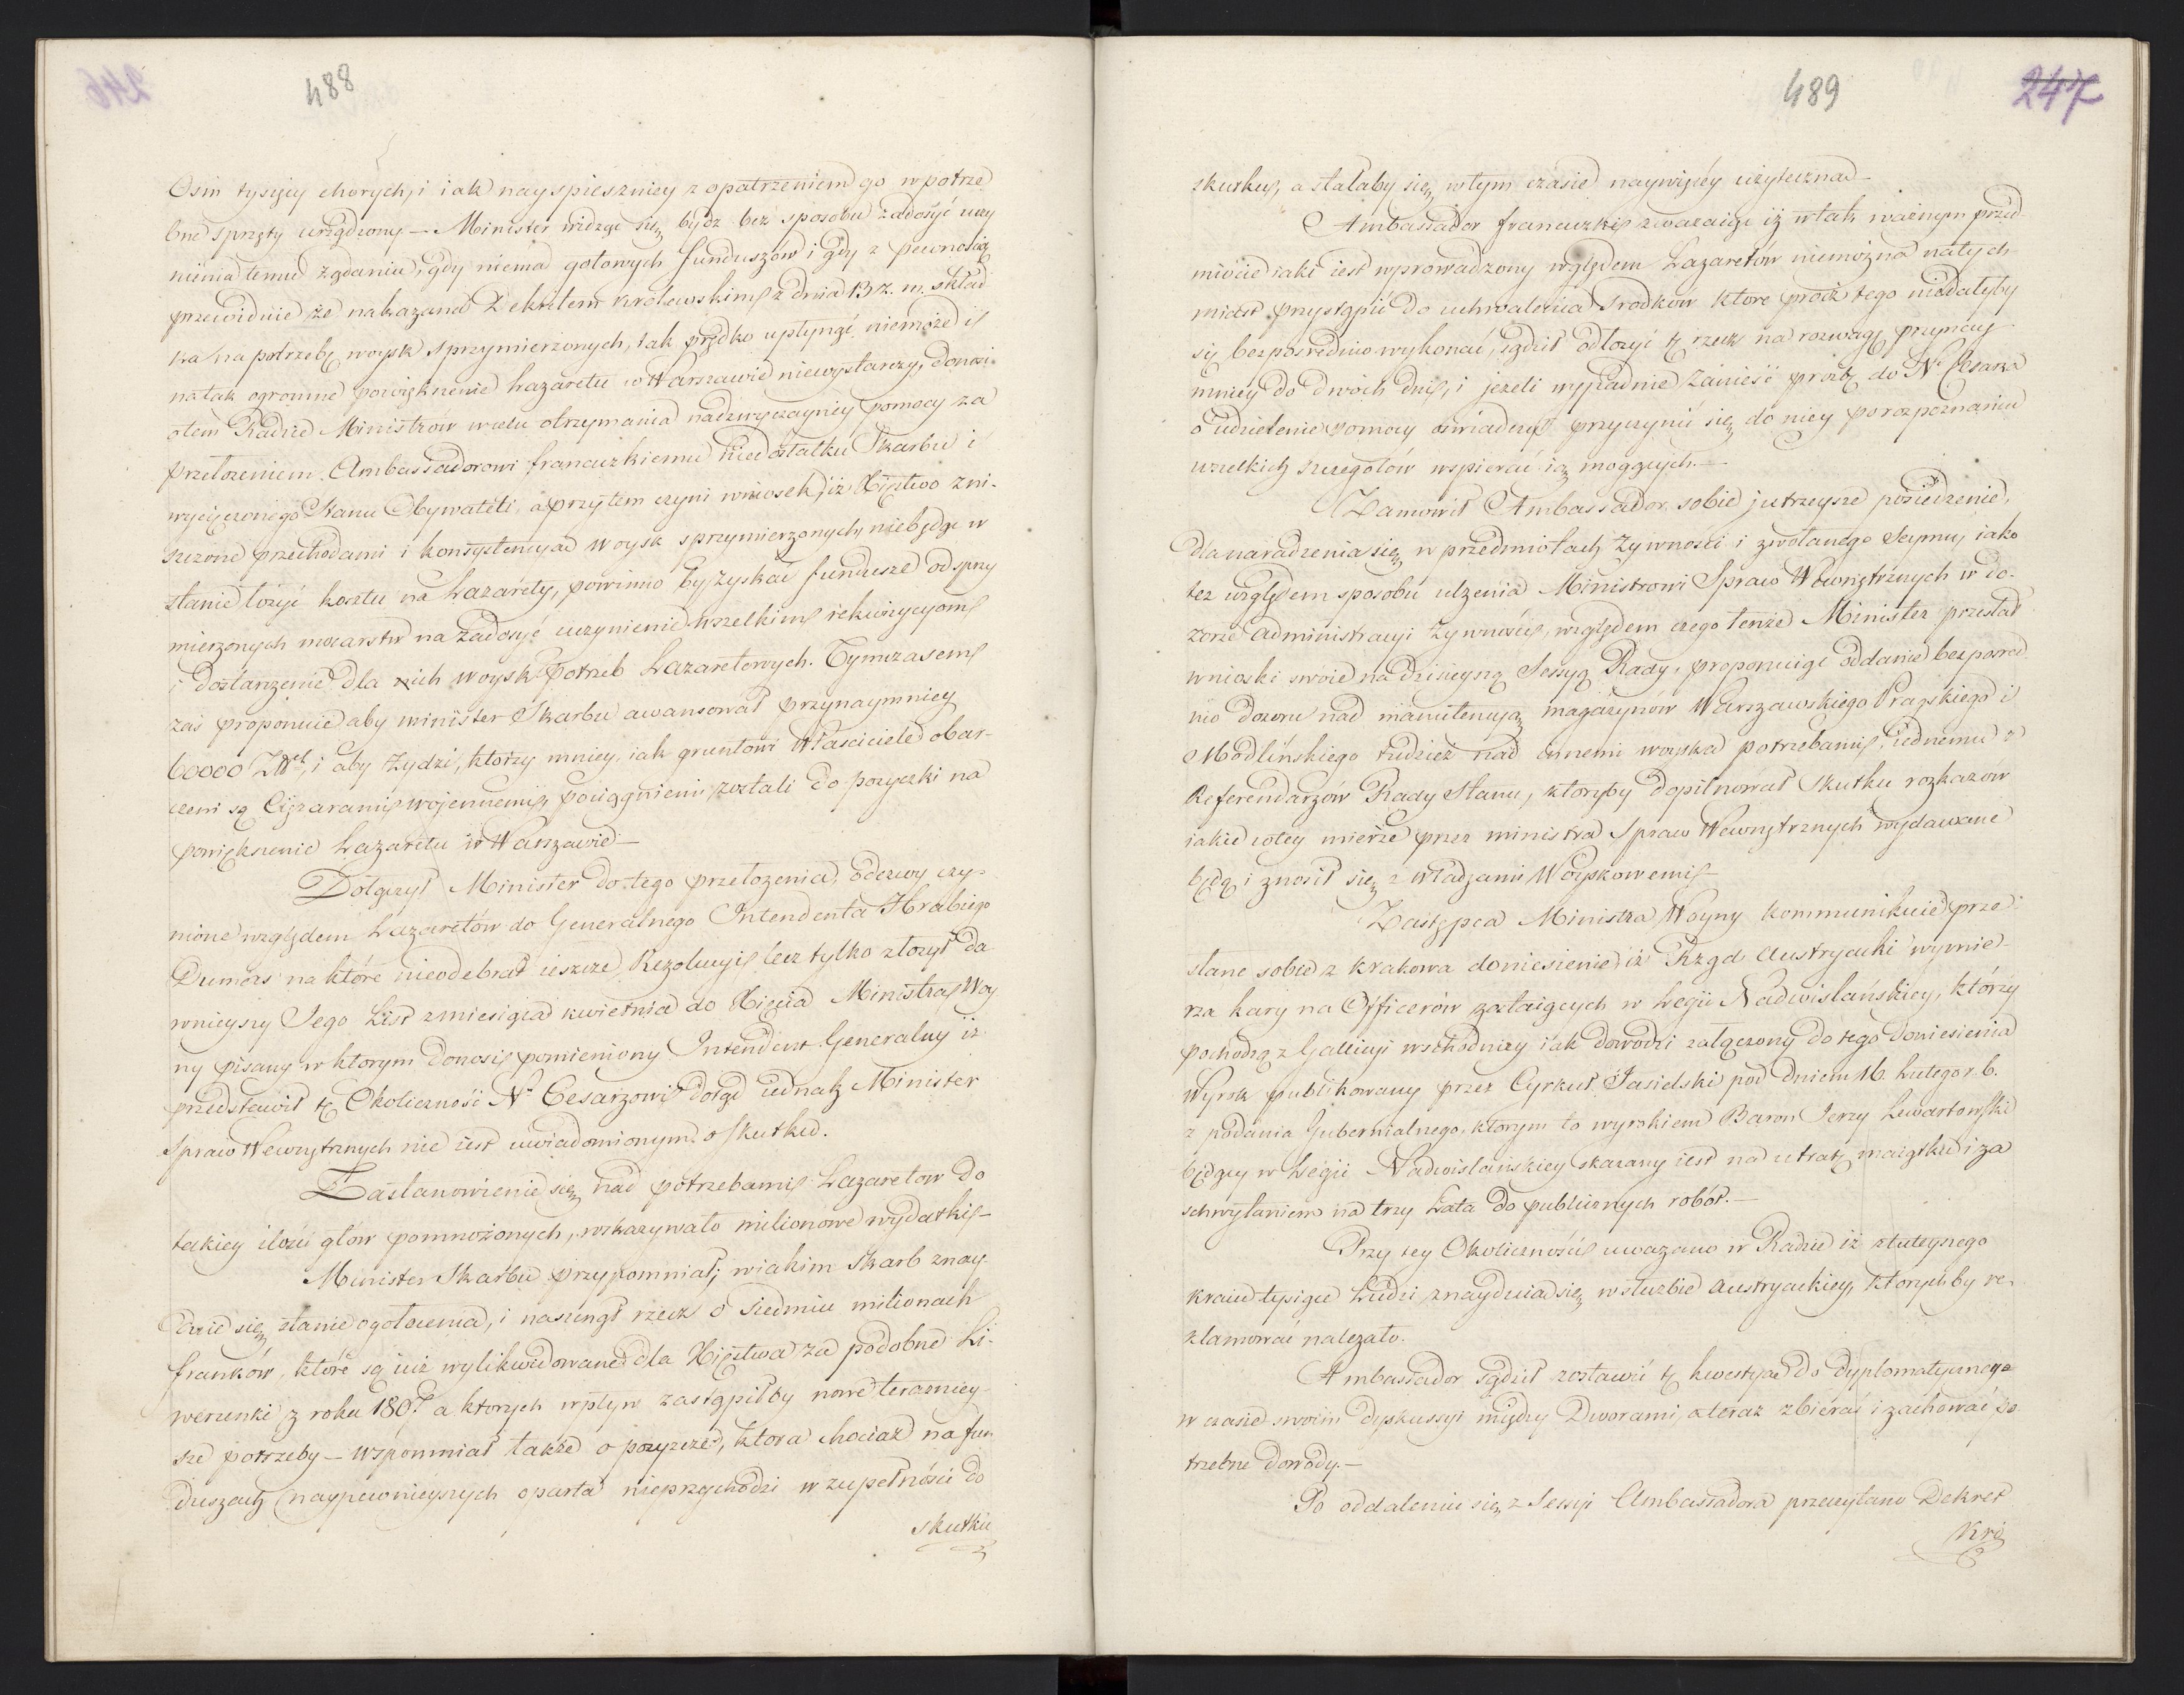 488
Osm tysięcy chorych, i iak nayspieszniey z opatrzeniem go w potrze
bne sprzęty urządzony — Minister widząc się bydź bez sposobu zadosyć uczy
nienia temu żądaniu, gdy niema gotowych funduszów i gdy z pewnością
przewiduie że nakazana Dekretem Królewskim z dnia 13 z. m. skład
ka na potrzebę woysk sprzymierzonych, tak prędko upłynąć niemoże i
na tak ogromne powiększenie Lazaretu w Warszawie niewystarczy, donosi
otem Radzie Ministrów w celu otrzymania nadzwyczayney pomocy za
przełożeniem Ambassadorowi francuzkiemu niedostatku Skarbu i
wycięczonego Stanu Obywateli, a przytem czyni wniosek, iż Xięstwo zni-
szczone przechodami i konsystencyą woysk sprzymierzonych, niebędąc w
stanie łożyć kosztu na Lazarety, powinno by zyskać fundusze od sprzy
mierzonych mocarstw na zadosyć uczynienie wszelkim rekwizycyom
i dostarczenie dla ich woysk potrzeb Lazaretowych. Tymczasem
zaś proponuie aby minister Skarbu awansował przynaymniey
60000 Złł, i aby Żydzi, którzy mniey, iak gruntowi Właściciele obar-
czeni są Ciężarami wojennemi, pociągnieni zostali do pożyczki na
powiększenie Lazaretu w Warszawie —
Dołączył Minister do tego przełożenia, odezwy czy-
nione względem Lazaretów do Generalnego Intendenta Hrabiego
Dumas na które nieodebrał ieszcze Rezolucyi lecz tylko złożył da
wnieyszy Jego List z miesiąca kwietnia do Xięcia Ministra Woy
ny pisany w ktorym donosi pomieniony Intendent Generalny iż
przedstawił tę Okoliczność N. Cesarzowi dotąd iednak Minister
Spraw Wewnętrznych nie iest uwiadomionym o skutku.
Zastanowienie się nad potrzebami Lazaretow do
takiey ilości głów pomnożonych, wskazywało milionowe wydatki —
Minister Skarbu przypomniał, w iakim Skarb znay-
duie się stanie ogołocenia, i nasunął rzecz o siedmiu milionach
franków, które są iuż wylikwidowane dla Xięstwa za podobne Li-
werunki z roku 1807 a ktorych wpływ zastąpiłby nowe teraźniey-
sze potrzeby — wspomniał także o pożyczce, ktora chociaż na fun
duszach naypewnieyszych oparta nieprzychodzi w zupełności do
skutku
489
247
skutku, a stałaby się w tym czasie naywięcey użyteczna —
Ambassador francuzki zważaiąc iż w tak ważnym przed
miocie iaki iest wyprowadzony względem Lazaretów niemożna natych
miast przystąpić do uchwalenia srodków ktore procz tego niedałyby
się bezposrednio wykonać, sądził odłożyć tę rzecz na rozwagę przynay
mniey do dwóch dni, i jeżeli wypadnie zanieść prośbę do N. Cesarza
o udzielenie pomocy oświadczył przyczynić się do niey po rozpoznaniu
wszelkich szczegółów wspierać ią mogących. —
Zamowił Ambassador sobie jutrzeysze posiedzenie,
dla naradzenia się w przedmiotach żywności i zwołanego Seymu, iako
też względem sposobu ulżenia Ministrowi Spraw Wewnętrznych w do-
zorze administracyi żywności, względem czego tenże Minister przesłał
wnioski swoie na dzisieyszą Sessyą Rady, proponuiąc oddanie bezpośred
nio dozoru nad manutencyą magazynów Warszawskiego Pragskiego i
Modlińskiego tudzież nad innemi woyska potrzebami, iednemu z
Referendarzów Rady Stanu, ktoryby dopilnował skutku rozkazow
iakie w tey mierze przez ministra Spraw Wewnętrznych wydawane
będą i znosił się z władzami Woyskowemi —
Zastępca Ministra Woyny kommunikuie prze
słane sobie z Krakowa doniesienie, iż Rząd Austryacki wymie-
rza kary na Officerów zostaiących w Legii Nadwislańskiey, którzy
pochodzą z Gallicyi wschodniey iak dowodzi załączony do tego doniesienia
Wyrok publikowany przez Cyrkuł Jasielski pod dniem 16. Lutego r. b.
z podania Gubernialnego, ktorym to wyrokiem Baron Jerzy Lewartowski
będący w Legii Nadwislańskiey skazany iest na utratę maiątku i za
schwytaniem na trzy Lata do publicznych robót. —
Przy tey Okoliczności uważano w Radzie iż z tuteyszego
kraiu tysiące Ludzi znayduia się w służbie Austryackiey, ktorychby re-
klamować należało.
Ambassador sądził zostawić tę kwestyą do dyplomatyczney
w czasie swoim dyskussyi między Dworami, a teraz zbierać i zachować po
trzebne dowody. —
Po oddaleniu się z Sessyi Ambassadora przeczytano Dekret
Kró